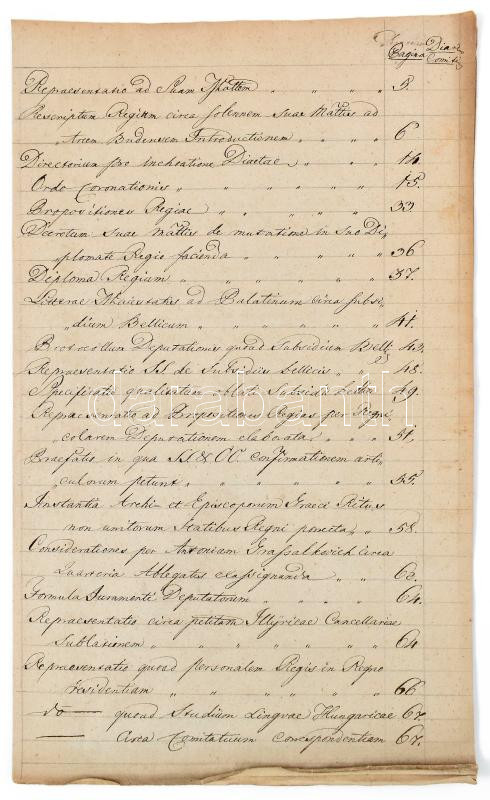 Pagina Diar.
Comit.
Repraesentatio ad Suam Mattem " " " " 3.
Rescriptum Regium circa solennem Suae Mattis ad
Arcem Budensem Introductionem " " " 6
Directorium pro Inchoatione Diaetae " " " 14
Ordo Coronationis " " " " " 15.
Propositiones Regiae " " " " 33.
Decretum Suae Mattis de mutatione in Suo Di-
"plomate Regio facienda " " " 36
Diploma Regium " " " " " 37.
Litterae ad Palatinum circa subsi-
"dium Bellicum " " " " " 41.
Protocollum Deputationis quoad Subsidium Bell. 43.
Repraesentatio SS. de Subsidiis bellicis " " 48.
Specificatio qualisnam oblati Subsidii 49.
Repraesentatio ad Propositiones Regias per Regni
"colarem Deputationem elaborata " " " 51.
Praefatio in qua SS & OO. confirmationem arti-
"culorum petunt " " " " " 55.
Instantia Archi- et Episcoporum Graeci Ritus
non unitorum Statibus Regni porrecta " " 58.
Considerationes per Antonium Grassalkovich circa
Quarteria Ablegatis exassignanda " " 62.
Formula Juramenti Deputatorum " " " 64.
Repraesentatio circa petitam Illÿricae Cancellariae
Sublationem " " " " " 64
Repraesentatio quoad personalem Regis in Regno
residentiam " " " " " 66
do — quoad Studium Linguae Hungaricae 67.
— circa Comitatuum correspondentiam 67.
darabanth